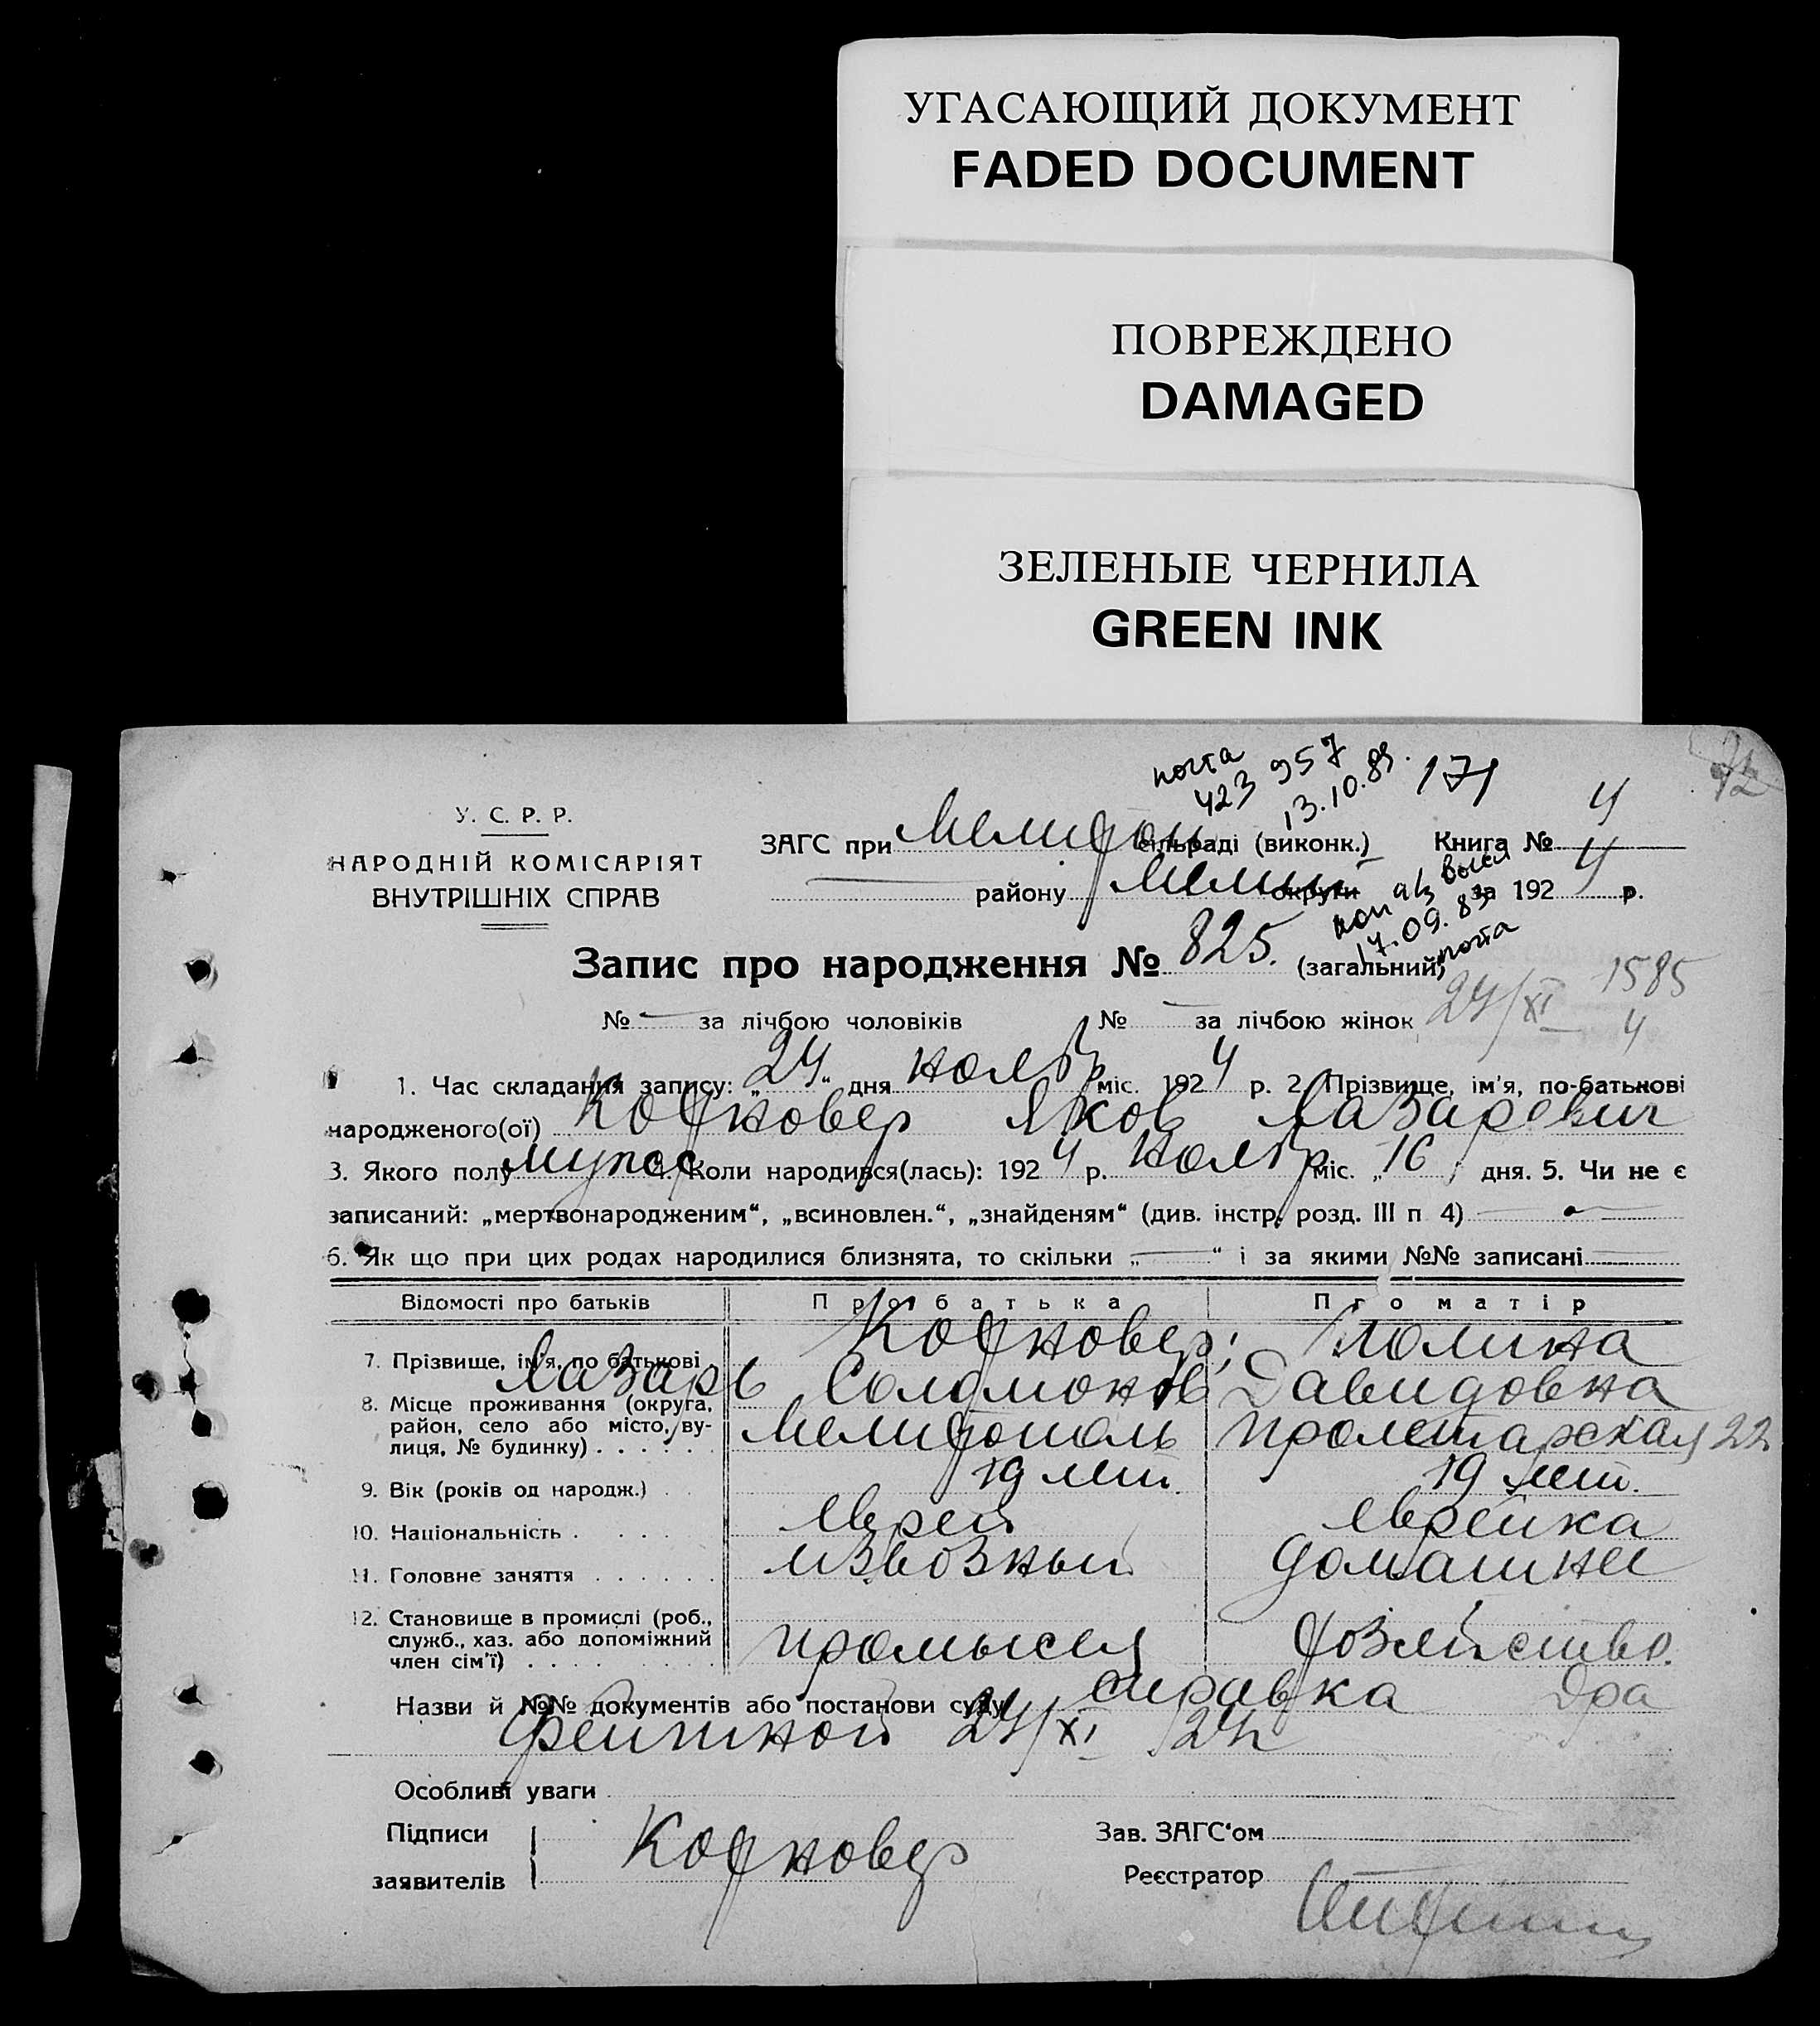 УГАСАЮЩИЙ ДОКУМЕНТ
FADED DOCUMENT
ПОВРЕЖДЕНО
DAMAGED
ЗЕЛЕНЫЕ ЧЕРНИЛА
GREEN INK
почта
423 957
13.10.89.
171
У. С. Р. Р.
НАРОДНІЙ КОМІСАРІЯТ
ВНУТРІШНІХ СПРАВ
ЗАГС при Мелитоп сільраді (виконк.) Книга № 4
району Мелит округи за 1924 р.
17.09.89
почта
Запис про народження № 825. (загальний)
24/XI 1585
4
№ — за лічбою чоловіків № — за лічбою жінок
1. Час складання запису: „24“ дня нояб міс. 1924 р. 2. Прізвище, ім'я, по-батькові
народженого(ої) Кофновер Яков Лазаревич
3. Якого полу мужс 4. Коли народився(лась): 1924 р. Ноябр міс. „16 дня. 5. Чи не є
записаний: „мертвонародженим“, „всиновлен.“, „знайденям“ (див. інстр. розд. III п 4) —
6. Як що при цих родах народилися близнята, то скільки „—“ і за якими №№ записані —
Відомості про батьків Про батька Про матір
7. Прізвище, ім'я, по батькові Кофновер; Полина
Лазарь Соломонов Давидовна
8. Місце проживання (округа, район, село або місто, ву-
лиця, № будинку) Мелитополь Пролетарская 22
9. Вік (років од народж.) 19 лет. 19 лет.
10. Національність еврей еврейка
11. Головне заняття извозный домашнее
12. Становище в промислі (роб.,
служб., хаз. або допоміжний
член сім'ї) промысел хозяйство.
Назви й №№ документів або постанови суду справка Дра
24/XI 24
Особливі уваги
Підписи
заявителів Кофновер
Зав. ЗАГС'ом
Реєстратор